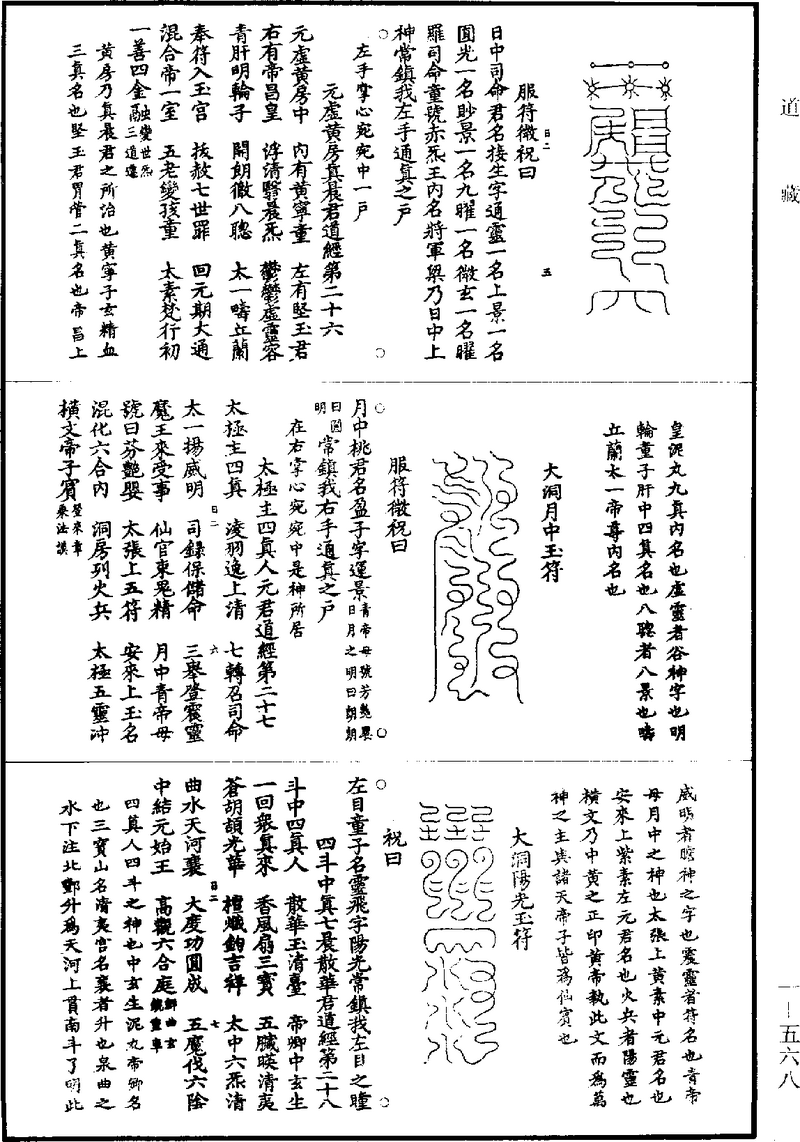 道藏
服符微祝曰
日中司命君名接生字通靈一名上景一名
圓光一名眇景一名九曜一名微玄一名曜
羅司命童號赤炁王內名將軍梁乃日中上
神常鎮我左手通真之戶
左手掌心宛宛中一戶
元虛黃房真晨君道經第二十六
元虛黃房中 內有黃寧童 左有堅玉君
右有帝昌皇 浮清翳晨炁 鬱鬱虛靈容
青肝明輪子 開朗徹八聰 太一疇丘蘭
奉符入玉宮 拔赦七世罪 回元期大通
混合帝一室 五老變孩童 太素梵行初
一善四金融
黃房乃真晨君之所治也黃寧子玄精血
三真名也堅玉君胃管二真名也帝昌上
皇泥丸九真內名也虛靈者谷神字也明
輪童子肝中四真名也八聰者八景也疇
丘蘭太一帝尊內名也
大洞月中玉符
服符微祝曰
月中桃君名盈子字運景青帝母號芳艷嬰日月之明曰朗朗
常鎮我右手通真之戶
在右掌心宛宛中是神所居
太極主四真人元君道經第二十七
太極主四真 淩羽逸上清 七轉召司命
太一揚威明 司錄保儲命 三舉登震靈
魔王來受事 仙官束鬼精 月中青帝母
號曰芬艷嬰 太張上五符 安來上玉名
混化六合內 洞房列火兵 太極五靈冲
橫文帝子賓
威明者膽神之字也震靈者符名也青帝
母月中之神也太張上黃素中元君名也
安來上紫素左元君名也火兵者陽靈也
橫文乃中黃之正印黃帝執此文而為萬
神之主與諸天帝子皆為仙賓也
大洞陽光玉符
祝曰
左目童子名靈飛字陽光常鎮我左目之瞳
四斗中真七晨散華君道經第二十八
斗中四真人 散華玉清臺 帝卿中玄生
一回衆真來 香風扇三寶 五臟暎清夷
蒼胡頡光華 檀熾鈞吉緯 太中六炁清
曲水天河襄 大度功圓成 五魔伐六陰
中結元始王 高觀六合庭
四真人四斗之神也中玄生泥丸帝卿名
也三寶山名清夷宮名襄者升也泉曲之
水下注北酆升為天河上貫南斗了明此
一—五六八